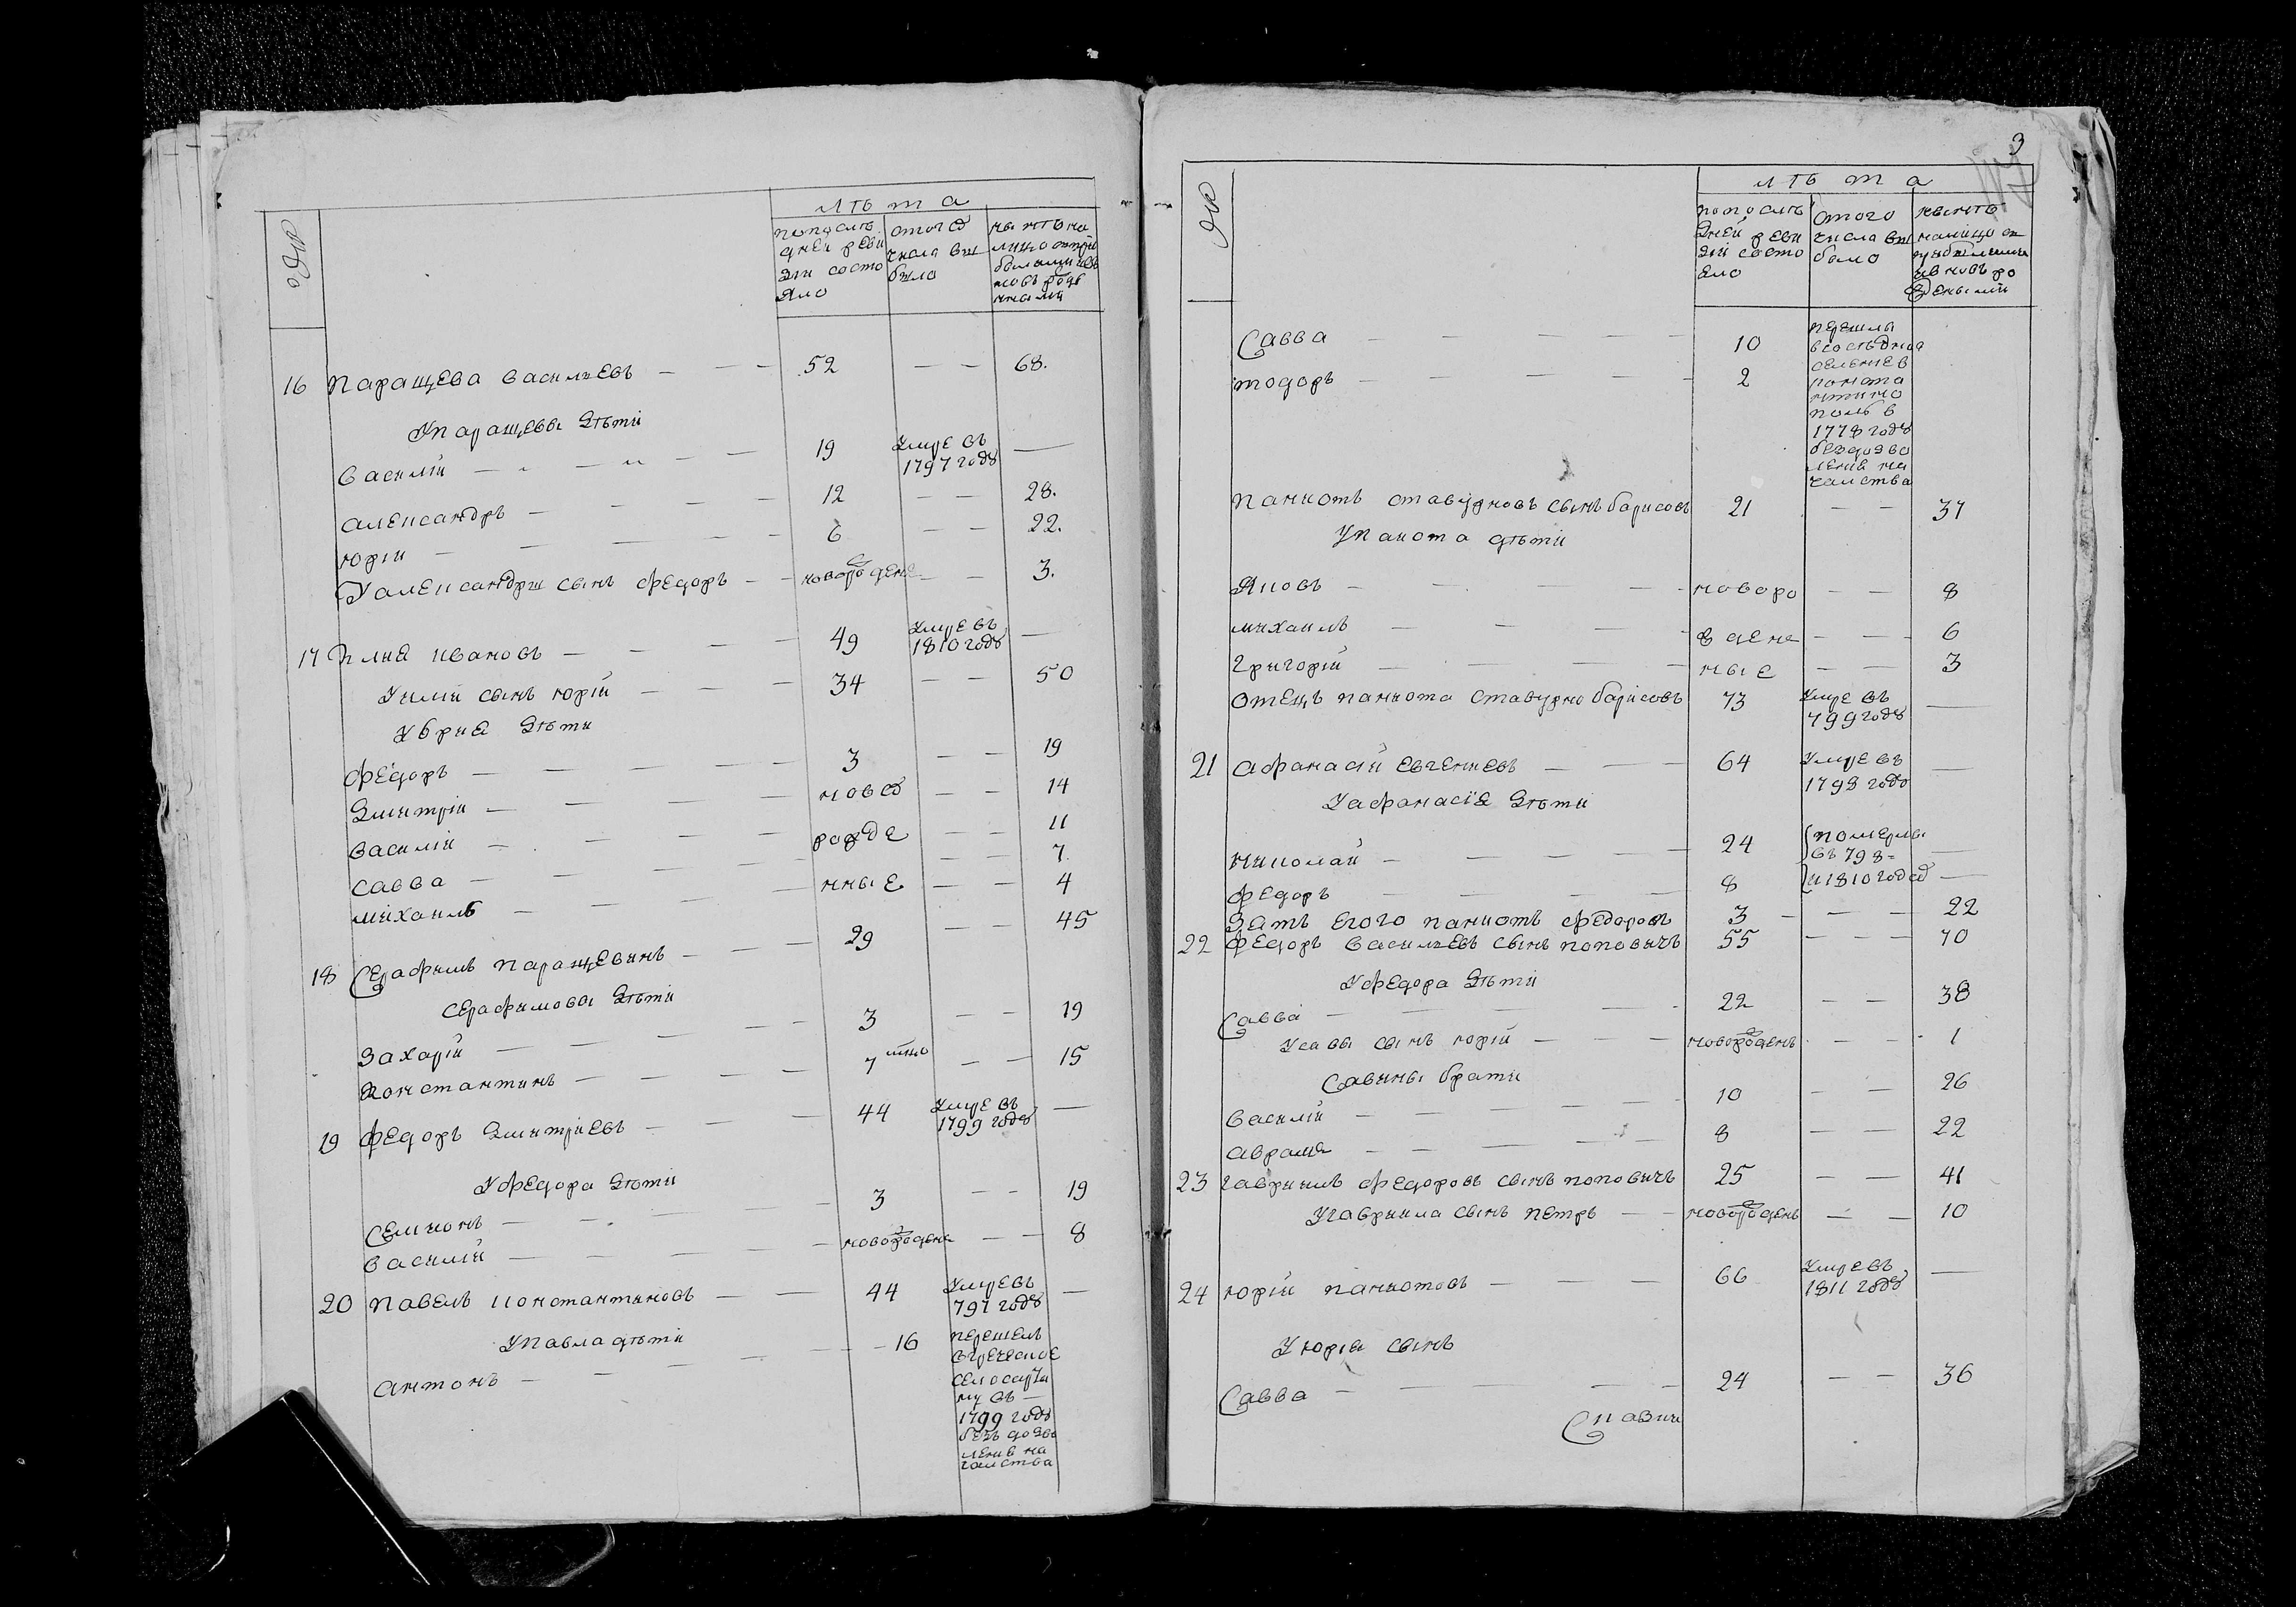 лѣта
попослѣ дней реви зіи состо яло
отого числа вы было
16 Паращева Васильевъ — 52 — — 68.
Упаращевы дѣти
Василій — 19 Умре въ 1797 году —
Александръ — 12 — — 28.
Юрій — 6 — — 22.
Уалександры сынъ Федоръ — новорождене — — 3.
17 Илия Ивановъ — 49 Умре въ 1810 году —
Уилии сынъ Юрій — 34 — — 50
Уюрия дѣти
Федоръ — 3 — — 19
Дмитрій — ново — — 14
Василій — рожде — — 11
Савва — — — 7.
Михаилъ — нные — — 4
18 Серафимъ Паращевинъ — 29 — — 45
Серафимовы дѣти
Захарій — 3 — — 19
Константинъ — 7 — — 15
19 Федоръ Дмитріевъ — 44 Умре въ 1799 году —
Уфедора дѣти
Семионъ — 3 — — 19
Василій — новорождене — — 8
20 Павелъ Константиновъ — 44 Умре въ 797 году —
Упавла дѣти
Антонъ — 16 перешелъ вгреческое село
1799 году безъ дозво ления на чалства
3
лѣта
попослѣ дней реви зіи состо яло
отого числа вы было
Савва — 10 перешлы
тодоръ — 2
1778 году бездозво ления на чалства
Панкотъ Ставурновъ сынъ Барисовъ 21 — — 37
Упанкота дѣти
Яковъ — новоро — — 8
Михаилъ — ждене — — 6
Григорій — ные — — 3
Отецъ Панкота Ставурно Барисовъ 73 Умре въ 799 году —
21 Афанасій Евгениевъ — 64 Умре въ 1798 году —
Уафанасія дѣти
Николай — 24 померлы въ 798 = —
Федоръ — 8 и 1810 годо —
Зять Егого Панкотъ Федоровъ 3 — — 22
22 Федоръ Васильевъ сынъ Поповичъ 55 — — 70
Уфедора дѣти
Савва — 22 — — 38
Усавы сынъ Юрій — новорожденъ — — 1
Савины брати
Василій — 10 — — 26
Аврамъ — 8 — — 22
23 Гавриилъ Федоровъ сынъ Поповичъ 25 — — 41
Угавриила сынъ Петръ — новорожденъ — — 10
24 Юрій Панкотовъ — 66 Умре въ 1811 году —
Уюрія сынъ
Савва — 24 — — 36